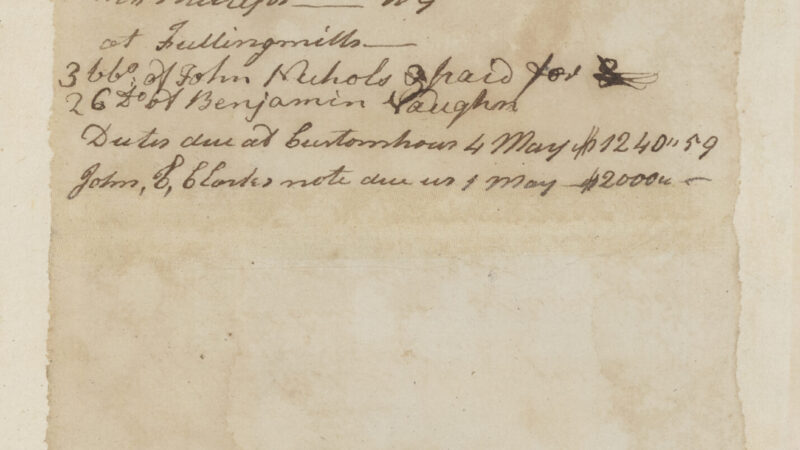 at Fullingmills
3 bbo. of John Nichols 3 paid for
26 Do of Benjamin Vaughn
Duties due at Customhous 4 May $1240"59
John, E, Clarks note due us 1 May $2000"